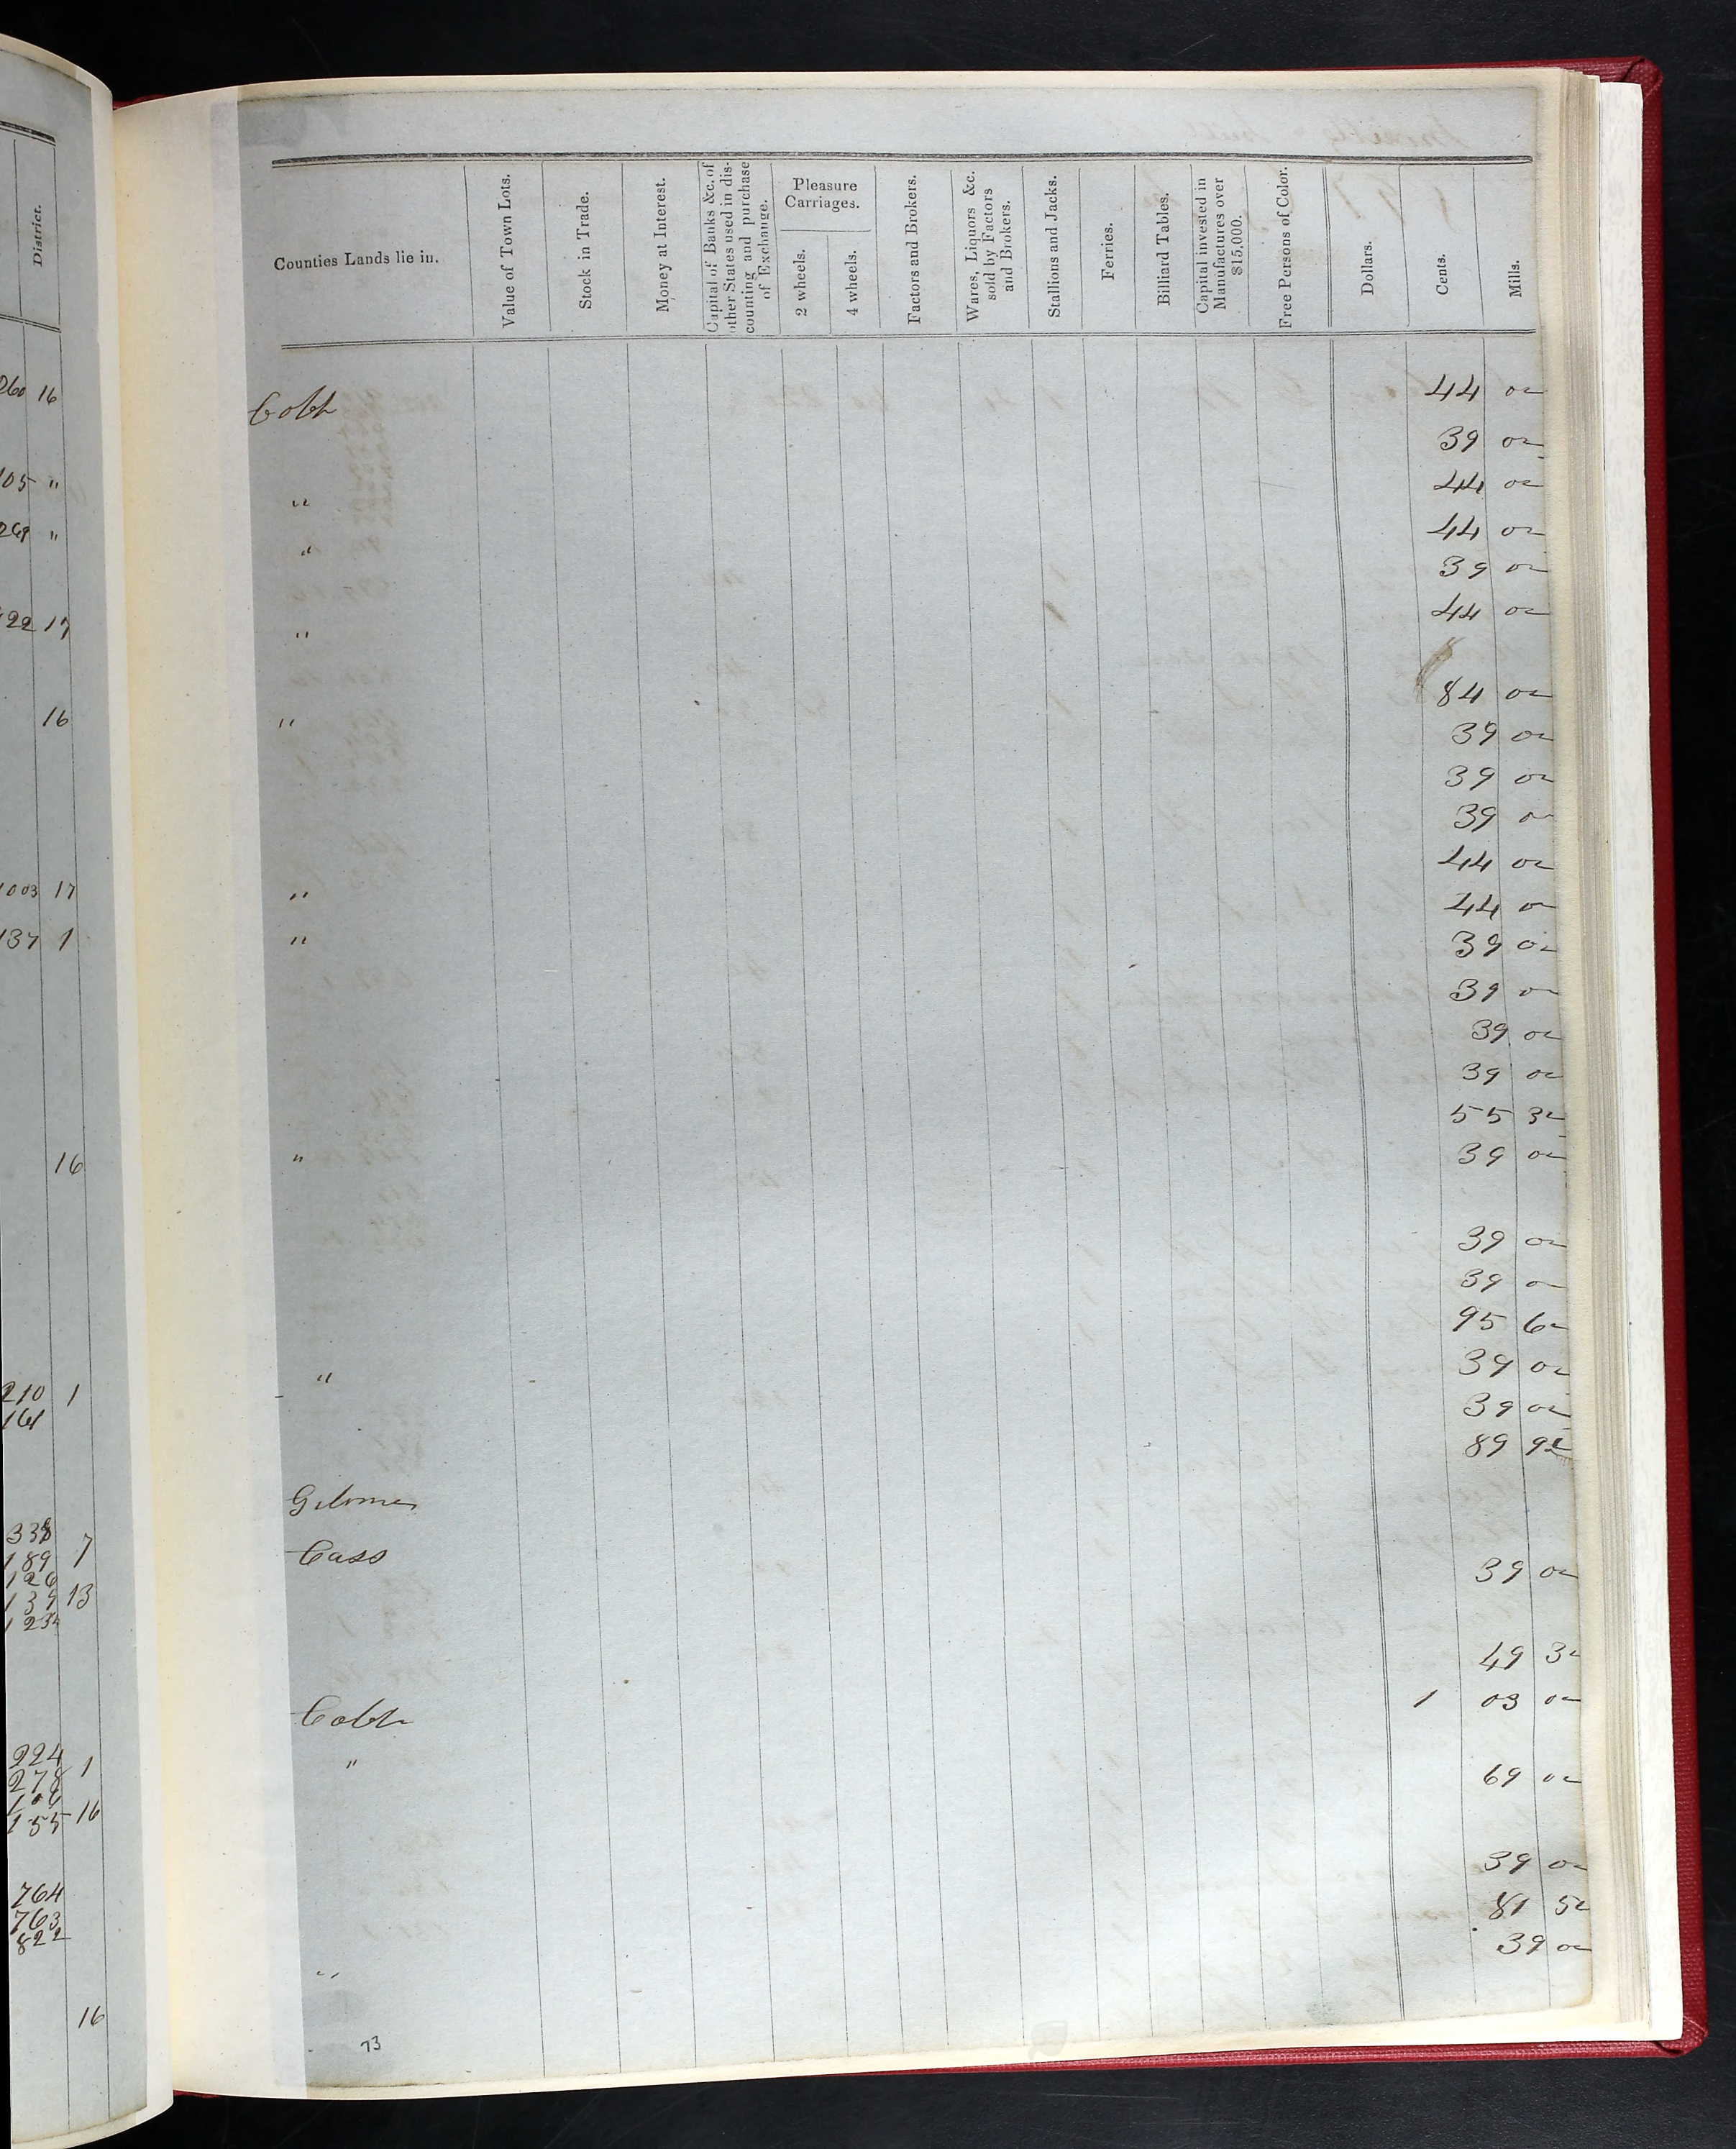 District.
260 16
105 "
269 "
422 17
16
1003 17
137 1
16
210 1
161
338
189 7
126
139 13
1234
224
278 1
106
155 16
764
763
822
16
Counties Lands lie in.
Value of Town Lots.
Stock in Trade.
Money at Interest.
Capital of Banks &c. of other States used in discounting and purchase of Exchange.
Pleasure Carriages.
2 wheels.
4 wheels.
Factors and Brokers.
Wares, Liquors &c. sold by Factors and Brokers.
Stallions and Jacks.
Ferries.
Billiard Tables.
Capital invested in Manufactures over $15,000.
Free Persons of Color.
Dollars.
Cents.
Mills.
Cobb 44 0
39 0
" 44 0
" 44 0
39 0
" 44 0
" 84 0
39 0
39 0
39 0
44 0
" 44 0
" 39 0
39 0
39 0
39 0
55 3
" 39 0
39 0
39 0
95 6
" 39 0
39 0
89 9
Gilmer
Cass 39 0
49 3
Cobb 1 03 0
" 69 0
39 0
81 5
" 39 0
73